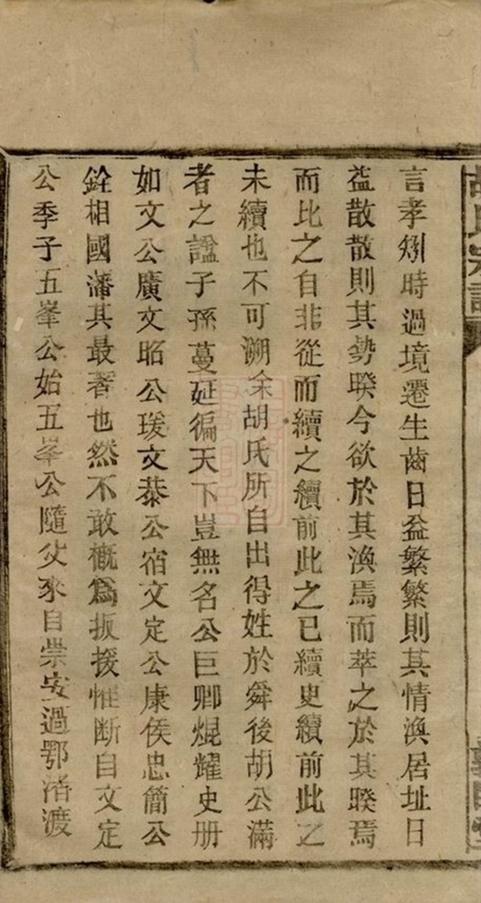 胡氏宗譜
言孝矧時過境遷生齒日益繁繁則其情渙居址日
益散散則其勢暌今欲於其渙焉而萃之於其暌焉
而比之自非從而續之續前此之已續更續前此之
未續也不可溯余胡氏所自出得姓於舜後胡公滿
者之諡子孫蔓延徧天下豈無名公巨卿焜耀史册
如文公廣文昭公瑗文恭公宿文定公康侯忠簡公
銓相國濳其最著也然不敢概爲扳援惟断自文定
公季子五峯公始五峯公隨父來自崇安過鄂渚渡